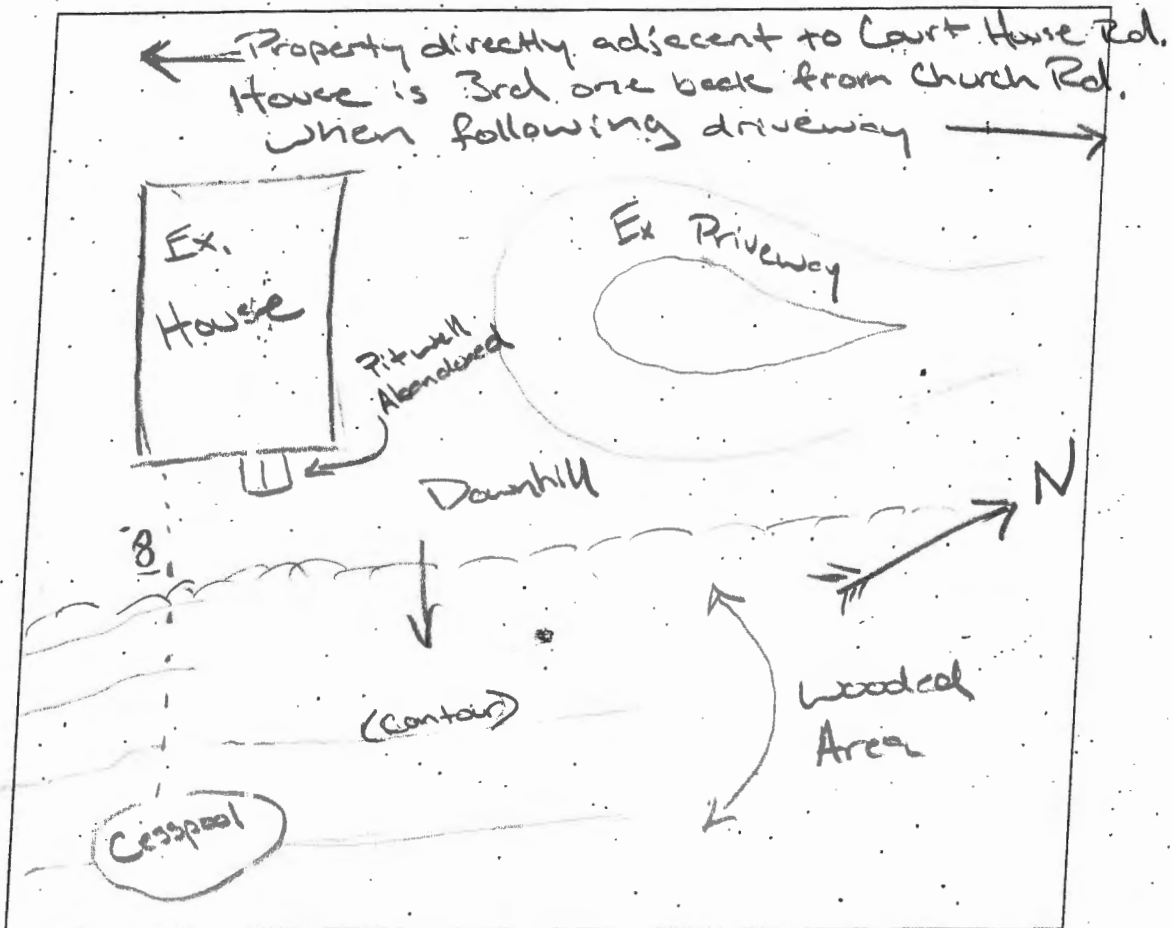 Property directly adjacent to Court House Rd.
House is 3rd one back from Church Rd.
when following driveway
Ex.
House
Ex Driveway
Pitwell
Abandoned
Downhill
N
8
(contour)
Wooded
Area
Cesspool